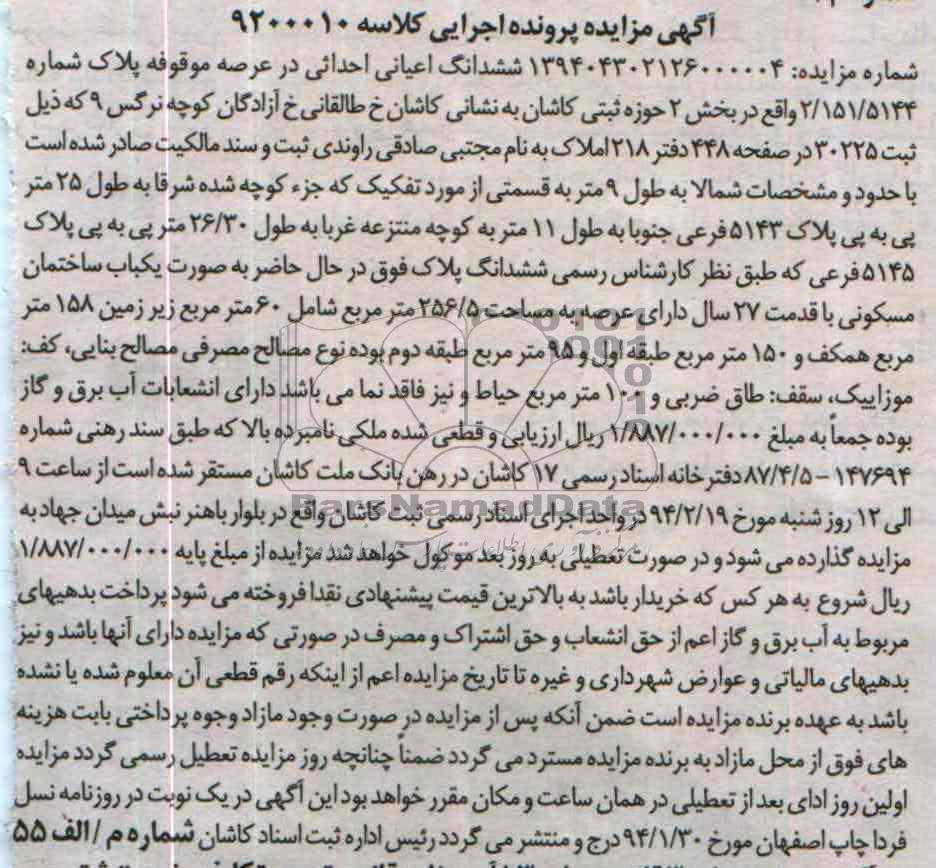 آگهی مزایده پرونده اجرایی کلاسه ۹۲۰۰۰۱۰
شماره مزایده: ۱۳۹۴۰۴۳۰۲۱۲۶۰۰۰۰۰۴ ششدانگ اعیانی احداثی در عرصه موقوفه پلاک شماره
۲/۱۵۱/۵۱۴۴ واقع در بخش ۲ حوزه ثبتی کاشان به نشانی کاشان خ طالقانی خ آزادگان کوچه نرگس ۹ که ذیل
ثبت ۳۰۲۲۵ در صفحه ۴۴۸ دفتر ۲۱۸ املاک به نام مجتبی صادقی راوندی ثبت و سند مالکیت صادر شده است
با حدود و مشخصات شمالا به طول ۹ متر به قسمتی از مورد تفکیک که جزء کوچه شده شرقا به طول ۲۵ متر
پی به پی پلاک ۵۱۴۳ فرعی جنوبا به طول ۱۱ متر به کوچه منتزعه غربا به طول ۲۶/۳۰ متر پی به پی پلاک
۵۱۴۵ فرعی که طبق نظر کارشناس رسمی ششدانگ پلاک فوق در حال حاضر به صورت یکباب ساختمان
مسکونی با قدمت ۲۷ سال دارای عرصه به مساحت ۲۵۶/۵ متر مربع شامل ۶۰ متر مربع زیر زمین ۱۵۸ متر
مربع همکف و ۱۵۰ متر مربع طبقه اول و ۹۵ متر مربع طبقه دوم بوده نوع مصالح مصرفی مصالح بنایی، کف:
موزاییک، سقف: طاق ضربی و ۱۰۰ متر مربع حیاط و نیز فاقد نما می باشد دارای انشعابات آب برق و گاز
بوده جمعاً به مبلغ ۱/۸۸۷/۰۰۰/۰۰۰ ریال ارزیابی و قطعی شده ملکی نامبرده بالا که طبق سند رهنی شماره
۱۴۷۶۹۴ - ۸۷/۴/۵ دفتر خانه اسناد رسمی ۱۷ کاشان در رهن بانک ملت کاشان مستقر شده است از ساعت ۹
الی ۱۲ روز شنبه مورخ ۹۴/۲/۱۹ در واحد اجرای اسناد رسمی ثبت کاشان واقع در بلوار باهنر نبش میدان جهاد به
مزایده گذارده می شود و در صورت تعطیلی به روز بعد موکول خواهد شد مزایده از مبلغ پایه ۱/۸۸۷/۰۰۰/۰۰۰
ریال شروع به هر کس که خریدار باشد به بالاترین قیمت پیشنهادی نقدا فروخته می شود پرداخت بدهیهای
مربوط به آب برق و گاز اعم از حق انشعاب و حق اشتراک و مصرف در صورتی که مزایده دارای آنها باشد و نیز
بدهیهای مالیاتی و عوارض شهرداری و غیره تا تاریخ مزایده اعم از اینکه رقم قطعی آن معلوم شده یا نشده
باشد به عهده برنده مزایده است ضمن آنکه پس از مزایده در صورت وجود مازاد وجوه پرداختی بابت هزینه
های فوق از محل مازاد به برنده مزایده مسترد می گردد ضمناً چنانچه روز مزایده تعطیل رسمی گردد مزایده
اولین روز ادای بعد از تعطیلی در همان ساعت و مکان مقرر خواهد بود این آگهی در یک نوبت در روزنامه نسل
فردا چاپ اصفهان مورخ ۹۴/۱/۳۰ درج و منتشر می گردد رئیس اداره ثبت اسناد کاشان شماره م / الف ۵۵
ParsNamadData